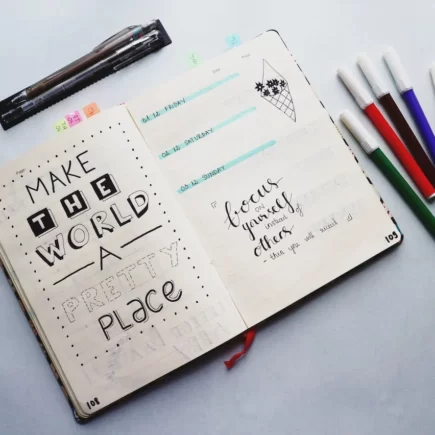 MAKE
THE
WORLD
A
PRETTY
PLACE
108
02 12 FRIDAY
02 12 SUNDAY
focus
yourself
on instead of
others
then you will succeed :)
109